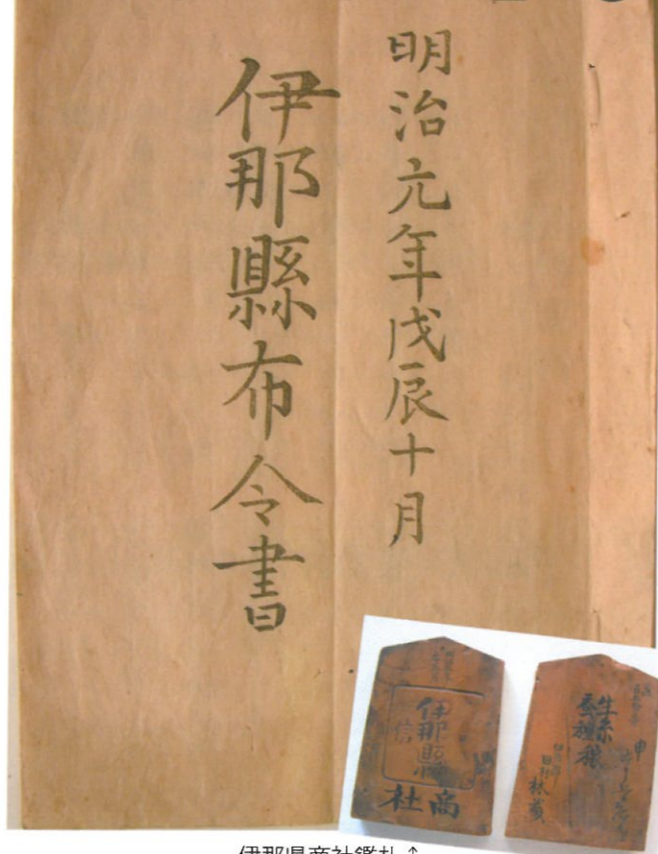 明治元年戊辰十月
伊那縣布令書
伊那縣
信
商社
生糸
蚕種
申
林蔵
伊那県商社鑑札↑